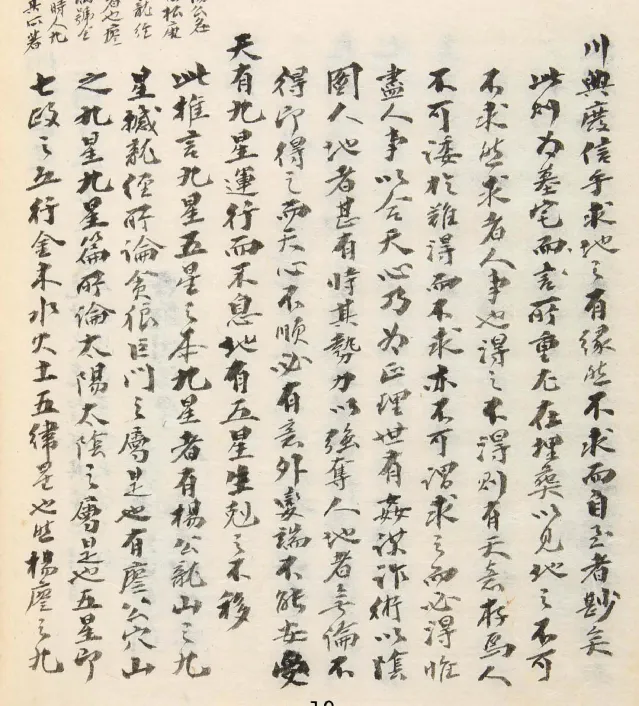 川與廣信乎求地之有緣然不求而自至者尠矣
此則为墓宅而言所重尤在埋葬以見地之不可
不求然求者人事也得之不得則有天意存焉人
不可諉於難得而不求亦不可謂求之而必得惟
盡人事以合天心乃为正理世有姦謀詐術以陰
圖人地者甚有恃其勢力以強奪人地者無倫不
得即得之而天心不順必有意外變端不能安受
天有九星運行而不息地有五星生剋之不移
此推言九星五星之本九星者有楊公龍山之九
星撼龍經所論貪狼巨門之屬是也有廖公穴山
之九星九星篇所論太陽太陰之屬是也五星即
七政之五行金木水火土五緯星也然楊廖之九
時人九
其所著